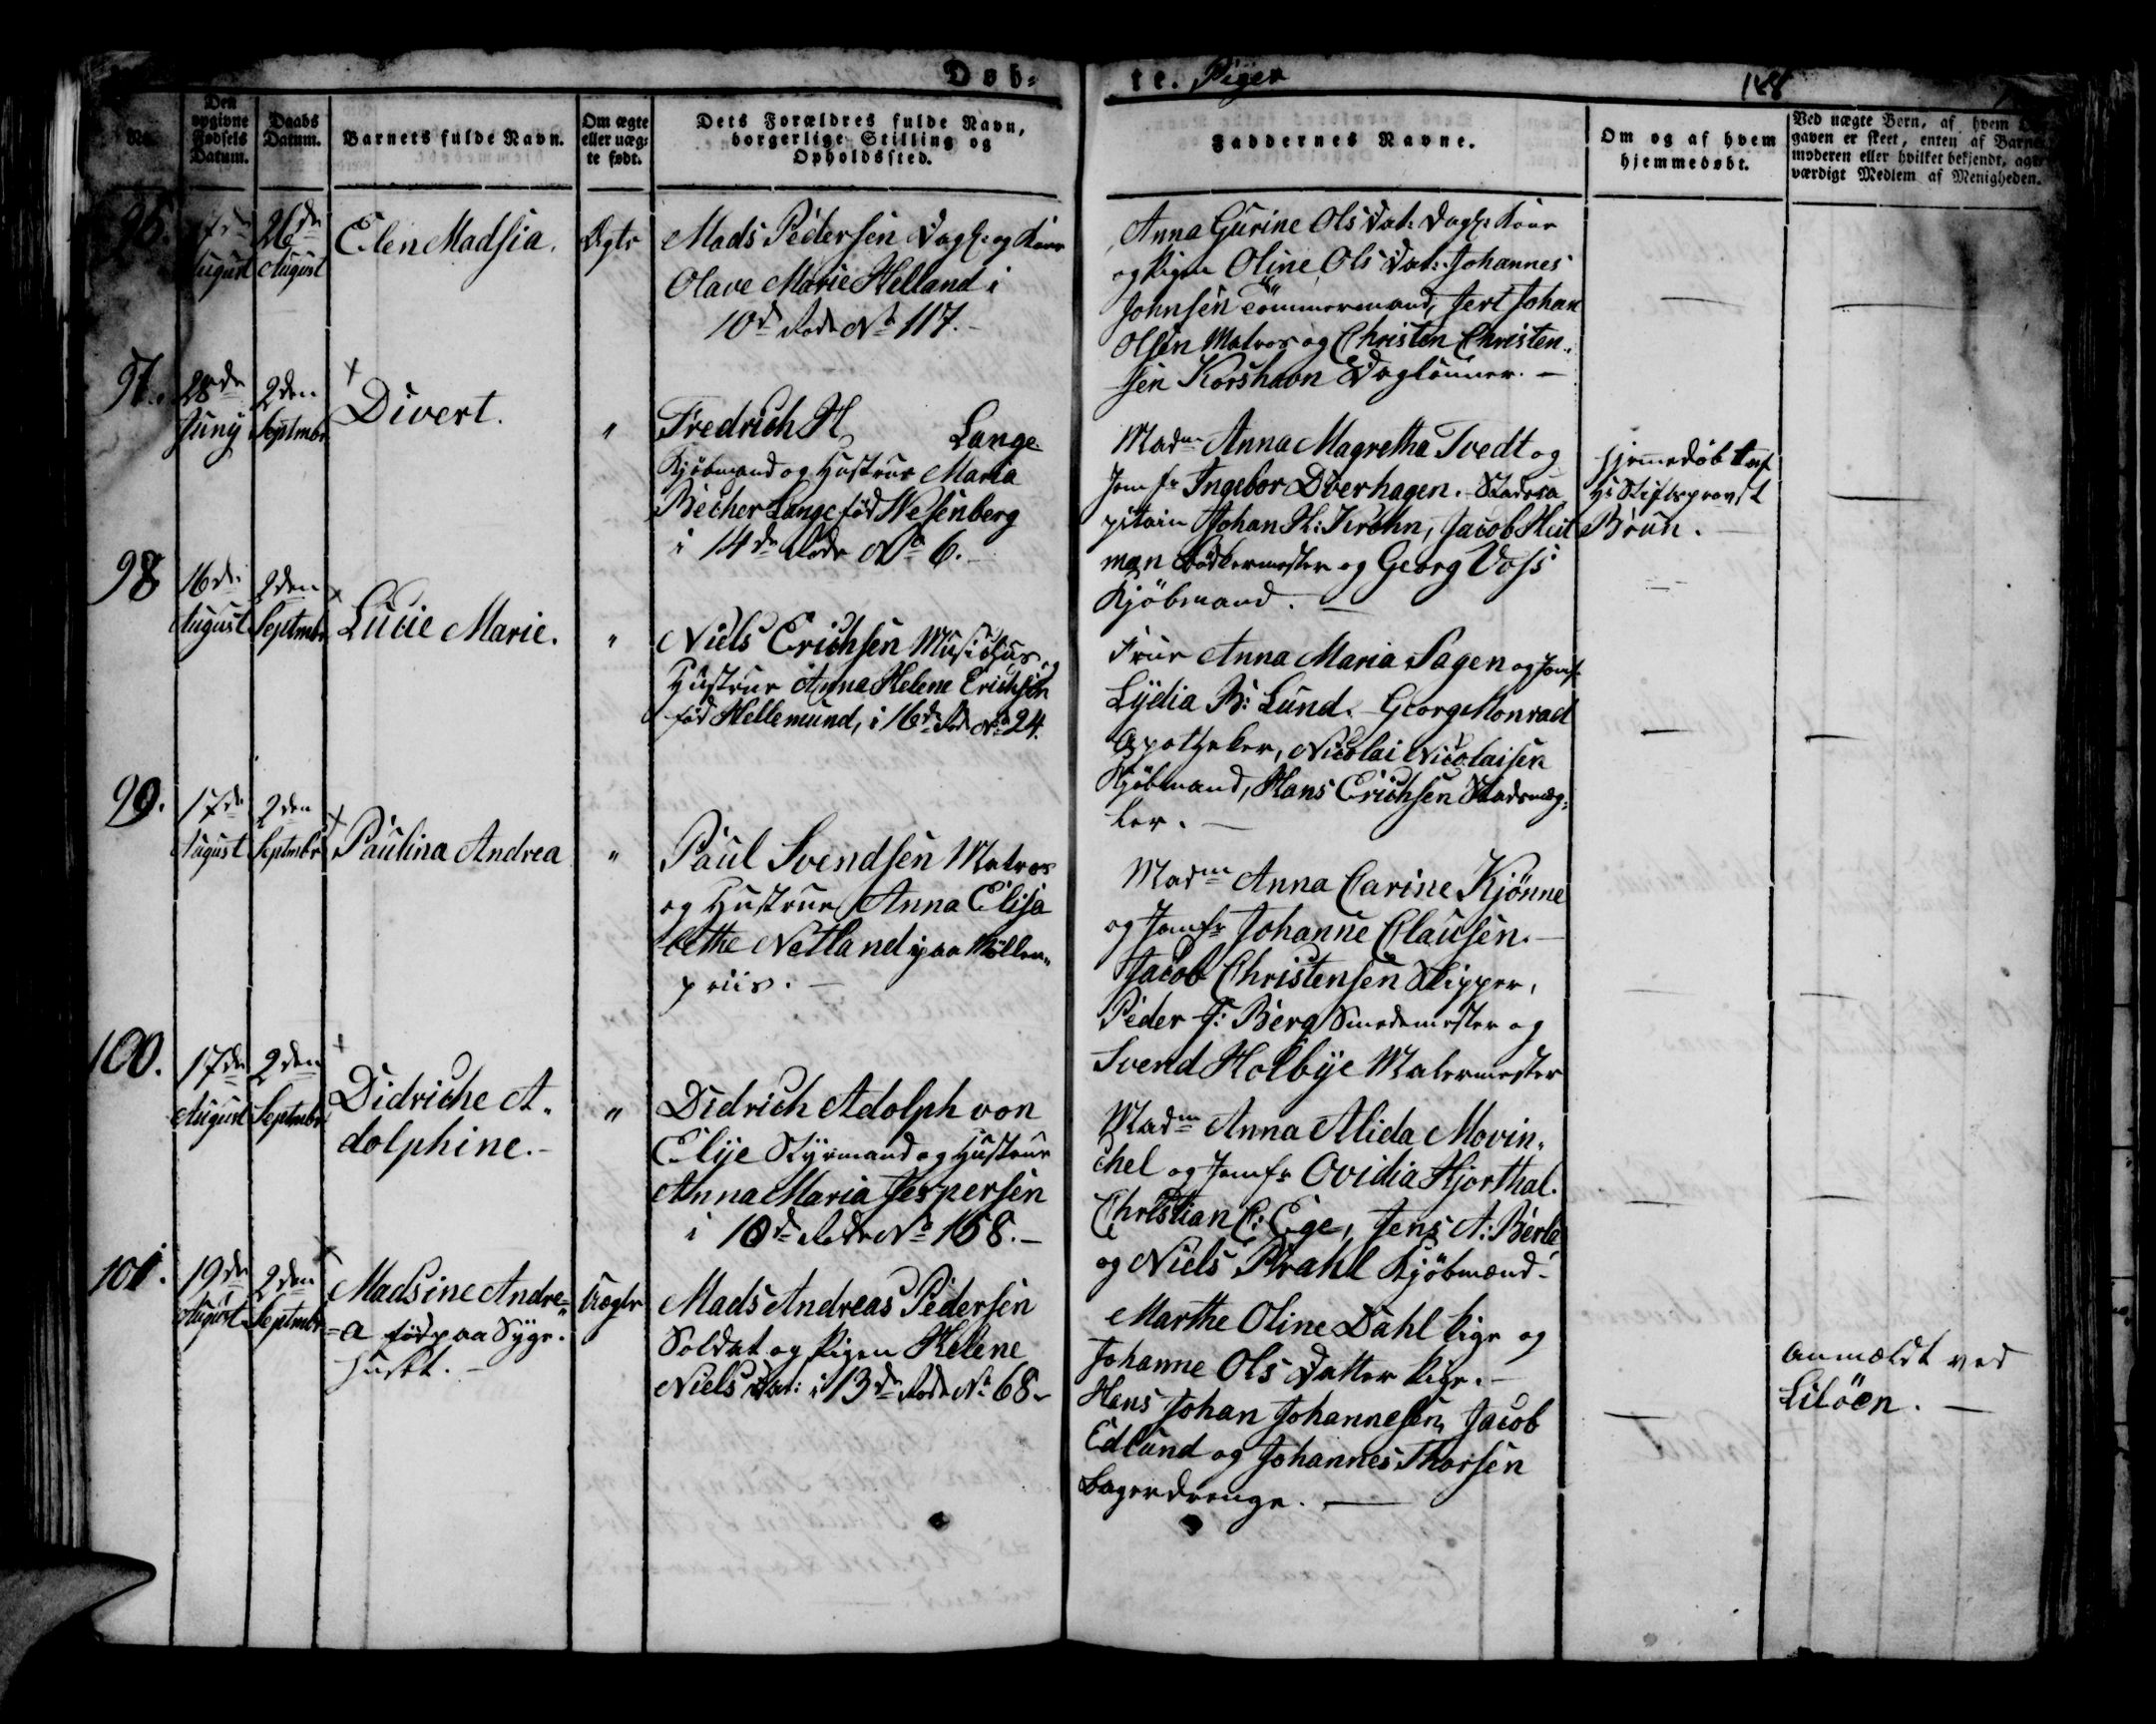 Døb-
te. Piger
188
No.
Den opgivne Fødsels Datum.
Daabs Datum.
Barnets fulde Navn.
Om ægte eller uæg-te født.
Dets Forældres fulde Navn, borgerlige Stilling og Opholdssted.
Faddernes Navne.
Om og af hvem hjemmedøbt.
Ved uægte Børn, af hvem
gaven er skeet, enten af Barne
moderen eller hvilket bekjendt, agt
værdigt Medlem af Menigheden.
96.
17de
August
26de
August
Elen Madsia.
Ægte
Mads Pedersen Dagl: og Kone
Olave Marie Helland i
10de Rode No 117.-
Anna Gurine Ols Dat: Dagl: Kone
og Pigen Oline Ols Dat: Johannes
Johnsen Tømmermand, Jert Johan
Olsen Matros og Christen Christen-
sen Korshavn Daglønner. -
97.
28de
Juny
2den
Septmbr
+
Divert.
"
Fredrich H Lange
Kjøbmand og Hustrue Maria
Becher Lange fød Wesenberg
i 14de Rode No 6.-
Madme Anna Magretha Tvedt og
Jomfr Ingebor Døerhagen. Stadsca
pitain Johan H: Krohn, Jacob Hut
man Bødkermester og Georg Voss
Kjøbmand. -
Hjemedøbt af
Hr Stiftsprovst
Brun. -
98
16de
August
2den
Septmbr
+
Lucie Marie.
"
Niels Erichsen Musichus og
Hustrue Anna Helene Erichsen
fød Hellemund, i 16de Rode No 24.
Frue Anna Maria Sagen og Jomf:
Lydia B: Lund. Georg Monrad
Apotheker, Nicolai Nicolaisen
Kjøbmand, Hans Erichsen Stadsmæg-
ler. -
99.
17de
August
2den
Septmbr
+
Paulina Andrea
"
Paul Svendsen Matros
og Hustrue Anna Elisa
bethe Netland paa Møllen-
priis. -
Madme Anna Carine Kjønne
og Jomfr Johanne Clausen. -
Jacob Christensen Skipper,
Peder F: Berg Smedemester og
Svend Holbye Malermester
100.
17de
August
2den
Septmbr
+
Didriche A-
dolphine.-
"
Didrich Adolph von
Elije Styrmand og Hustrue
Anna Maria Jespersen
i 10de Rode No 168.-
Madme Anna Alida Movin-
chel og Jomfr Ovidia Hjorthal.
Christian C: Ege, Jens A: Berle
og Niels Prahl Kjøbmænd-
101.
19de
August
2den
Septmbr
+
Madsine Andre-
-a fød paa Syge-
huset. -
Uægte
Mads Andreas Pedersen
Soldat og Pigen Helene
Niels Dat: i 13de Rode No 68-
Marthe Oline Dahl Pige og
Johanne Ols Datter Pige. -
Hans Johan Johannesen, Jacob
Edlund og Johannes Thorsen
Bagerdrenge. -
anmeldt ved
Liløen. -